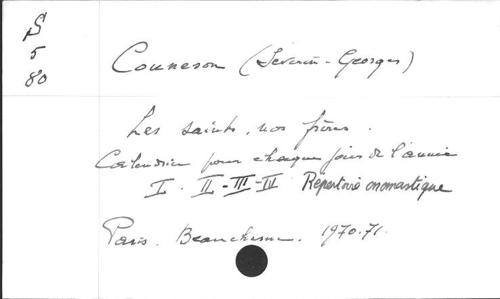 S
5
80
Couneson (Séverin-Georges)
Les saints, nos frères.
Calendrier pour chaque jour de l'année
I. II-III-IV Répertoire onomastique
Paris. Beauchesne. 1970.71.